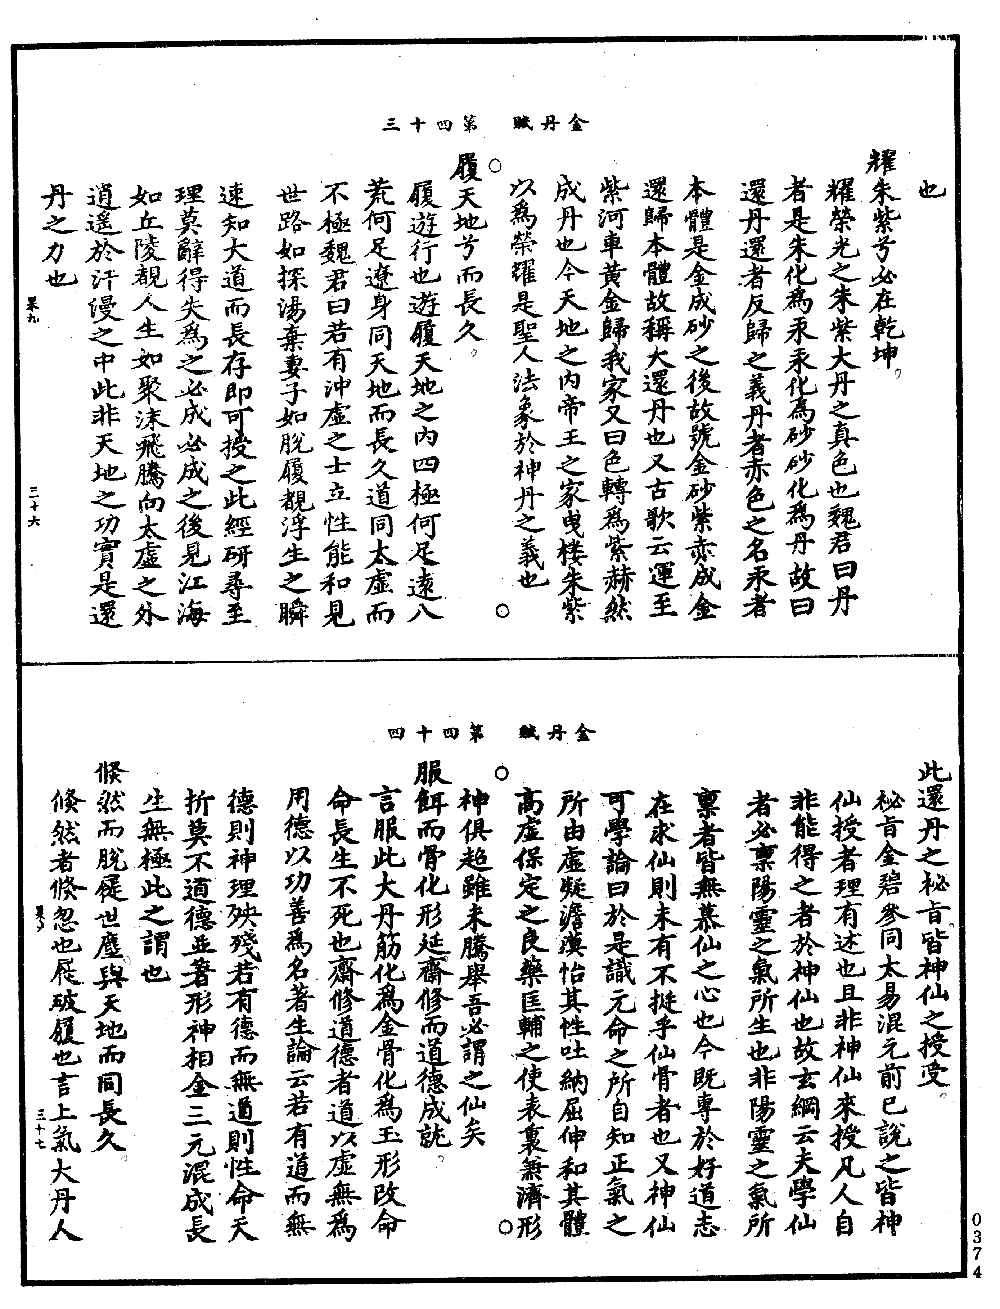 金丹賦　第四十三
也
耀朱紫兮必在乾坤。
耀榮光之朱紫大丹之真色也魏君曰丹
者是朱化為汞汞化為砂砂化為丹故曰
還丹還者反歸之義丹者赤色之名汞者
本體是金成砂之後故號金砂紫赤成金
還歸本體故稱大還丹也又古歌云運至
紫河車黃金歸我家又曰色轉為紫赫然
成丹也今天地之內帝王之家曳樓朱紫
以為榮耀是聖人法象於神丹之義也
履天地兮而長久。
履遊行也遊履天地之內四極何足遠八
荒何足遼身同天地而長久道同太虛而
不極魏君曰若有沖虛之士立性能和見
世路如探湯棄妻子如脫履覩浮生之瞬
速知大道而長存即可授之此經研尋至
理莫辭得失為之必成必成之後見江海
如丘陵覩人生如聚沫飛騰向太虛之外
逍遙於汗漫之中此非天地之功實是還
丹之力也
果九　三十六
金丹賦　第四十四
此還丹之秘旨皆神仙之授受。
秘旨金碧參同太易混元前已說之皆神
仙授者理有述也且非神仙來授凡人自
非能得之者於神仙也故玄綱云夫學仙
者必稟陽靈之氣所生也非陽靈之氣所
稟者皆無慕仙之心也今既專於好道志
在求仙則未有不挺乎仙骨者也又神仙
可學論曰於是識元命之所自知正氣之
所由虛凝澹漠怡其性吐納屈伸和其體
高虛保定之良藥匡輔之使表裏兼濟形
神俱超雖未騰舉吾必謂之仙矣
服餌而骨化形延齋修而道德成就。
言服此大丹筋化為金骨化為玉形改命
命長生不死也齋修道德者道以虛無為
用德以功善為名著生論云若有道而無
德則神理殃殘若有德而無道則性命夭
折莫不道德並著形神相全三元混成長
生無極此之謂也
倏然而脫屣世塵與天地而同長久。
倏然者倏忽也屣破履也言上氣大丹人
三十七
0374